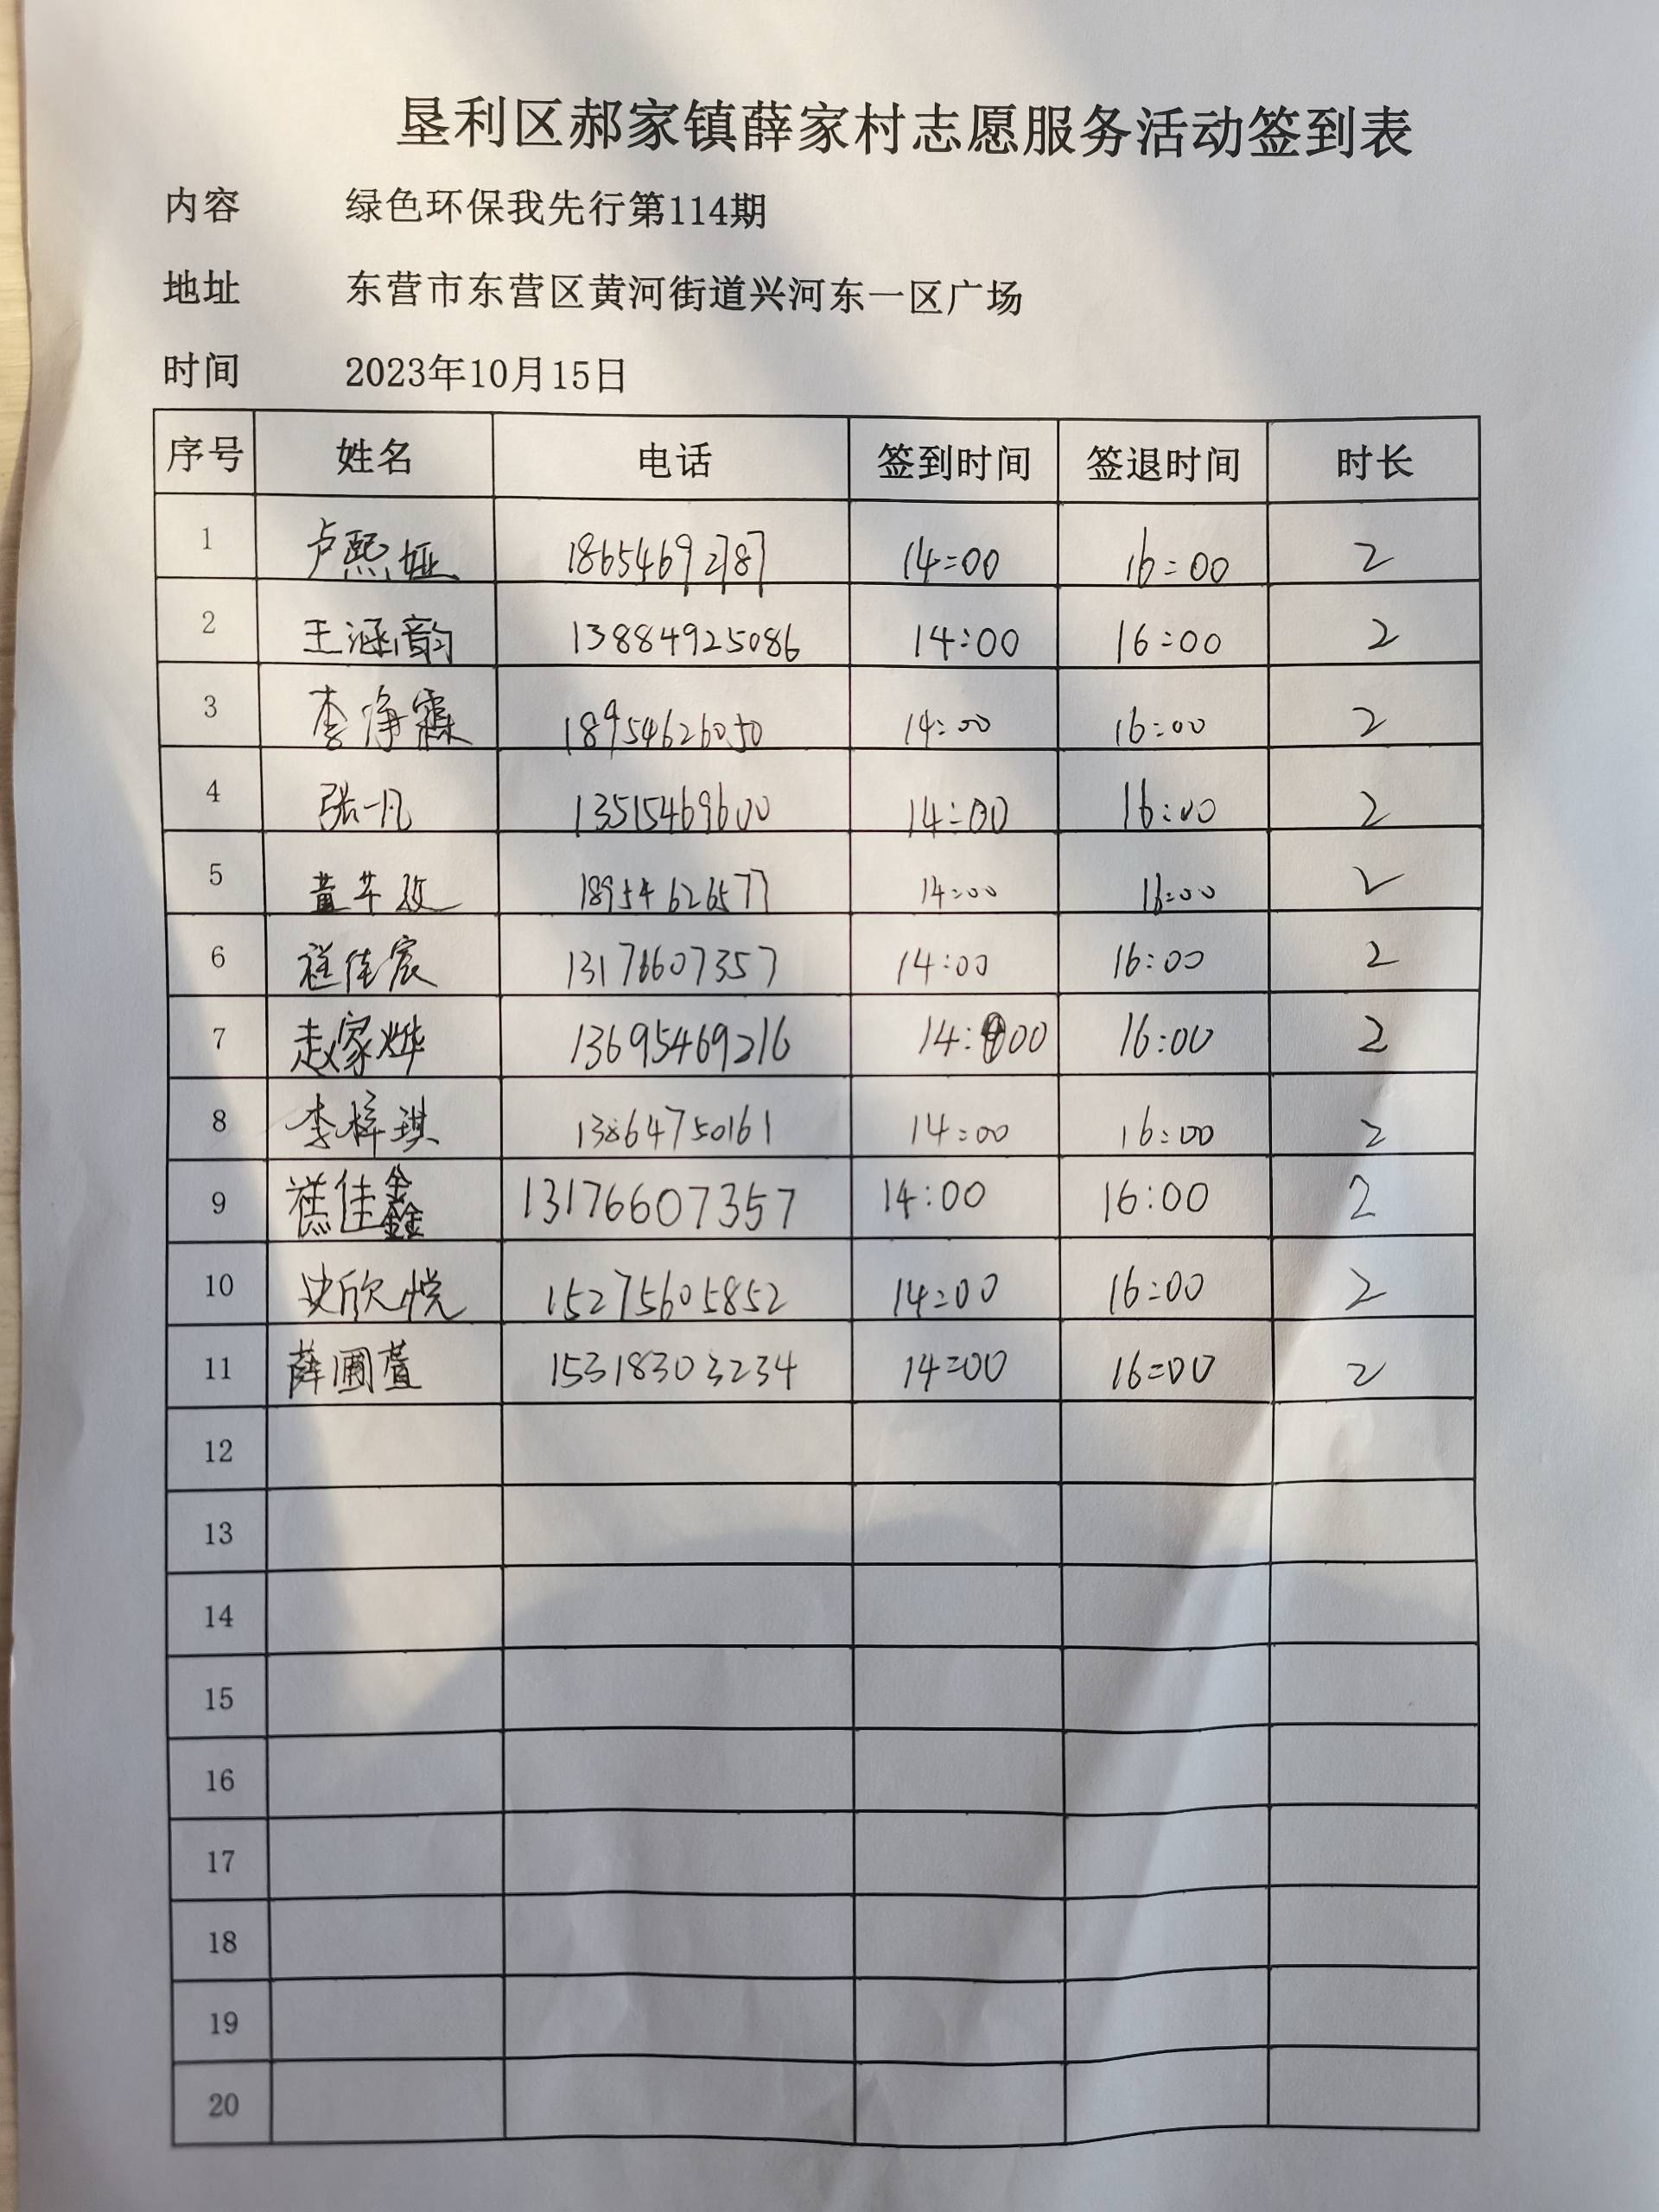 垦利区郝家镇薛家村志愿服务活动签到表
内容 绿色环保我先行第114期
地址 东营市东营区黄河街道兴河东一区广场
时间 2023年10月15日
序号 姓名 电话 签到时间 签退时间 时长
1 卢熙娅 18654692787 14:00 16:00 2
2 王涵韵 13884925086 14:00 16:00 2
3 李净霖 18954626050 14:00 16:00 2
4 张一凡 13515469600 14:00 16:00 2
5 董芊孜 18954626577 14:00 16:00 2
6 禚佳宸 13176607357 14:00 16:00 2
7 赵家烨 13695469216 14:00 16:00 2
8 李梓琪 13864750161 14:00 16:00 2
9 禚佳鑫 13176607357 14:00 16:00 2
10 史欣悦 15275605852 14:00 16:00 2
11 薛圃萱 15318303234 14:00 16:00 2
12
13
14
15
16
17
18
19
20